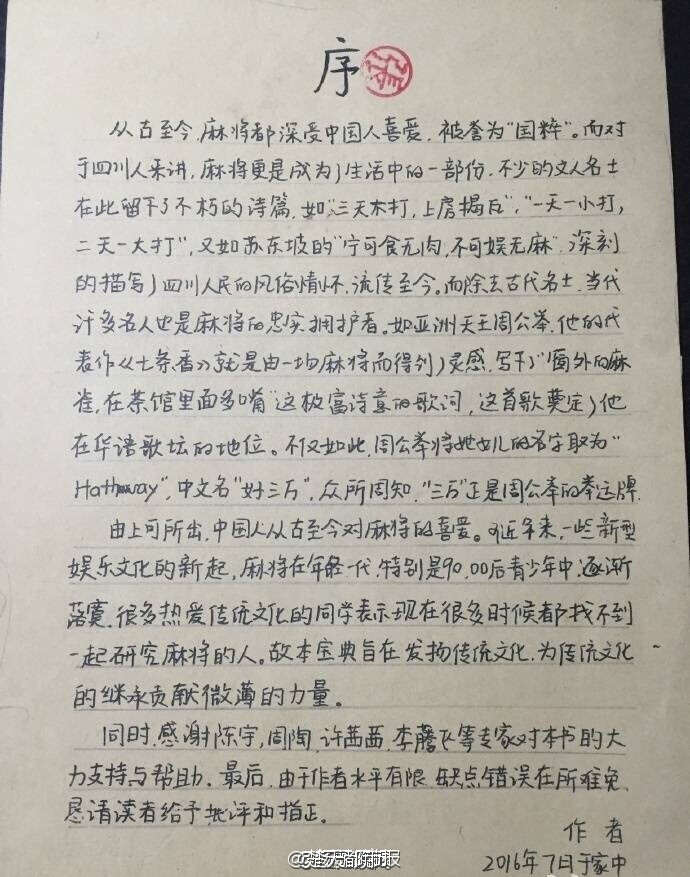 序
从古至今,麻将都深受中国人喜爱,被誉为“国粹”。而对
于四川人来讲,麻将更是成为了生活中的一部份,不少的文人名士
在此留下了不朽的诗篇,如“三天不打,上房揭瓦”,“一天一小打,
二天一大打”,又如苏东坡的“宁可食无肉,不可娱无麻”,深刻
的描写了四川人民的风俗情怀,流传至今。而除去古代名士,当代
许多名人也是麻将的忠实拥护者。如亚洲天王周公举,他的代
表作《七条香》就是由一场麻将而得到了灵感,写下了“窗外的麻
雀,在茶馆里面多嘴”这极富诗意的歌词,这首歌奠定了他
在华语歌坛的地位。不仅如此,周公举将她女儿的名字取为“
Hathaway”,中文名“好三万”,众所周知,“三万”正是周公举的幸运牌.
由上可所出,中国人从古至今对麻将的喜爱。近年来,一些新型
娱乐文化的新起,麻将在年轻一代,特别是90,00后青少年中,逐渐
落寞,很多热爱传统文化的同学表示现在很多时候都找不到
一起研究麻将的人。故本宝典旨在发扬传统文化,为传统文化
的继承贡献微薄的力量。
同时,感谢陈宇,周陶,许茜西,李腾飞等专家对本书的大
力支持与帮助.最后,由于作者水平有限,缺点错误在所难免,
恳请读者给予批评和指正。
作者
2016年7日于家中
@楚天都市报